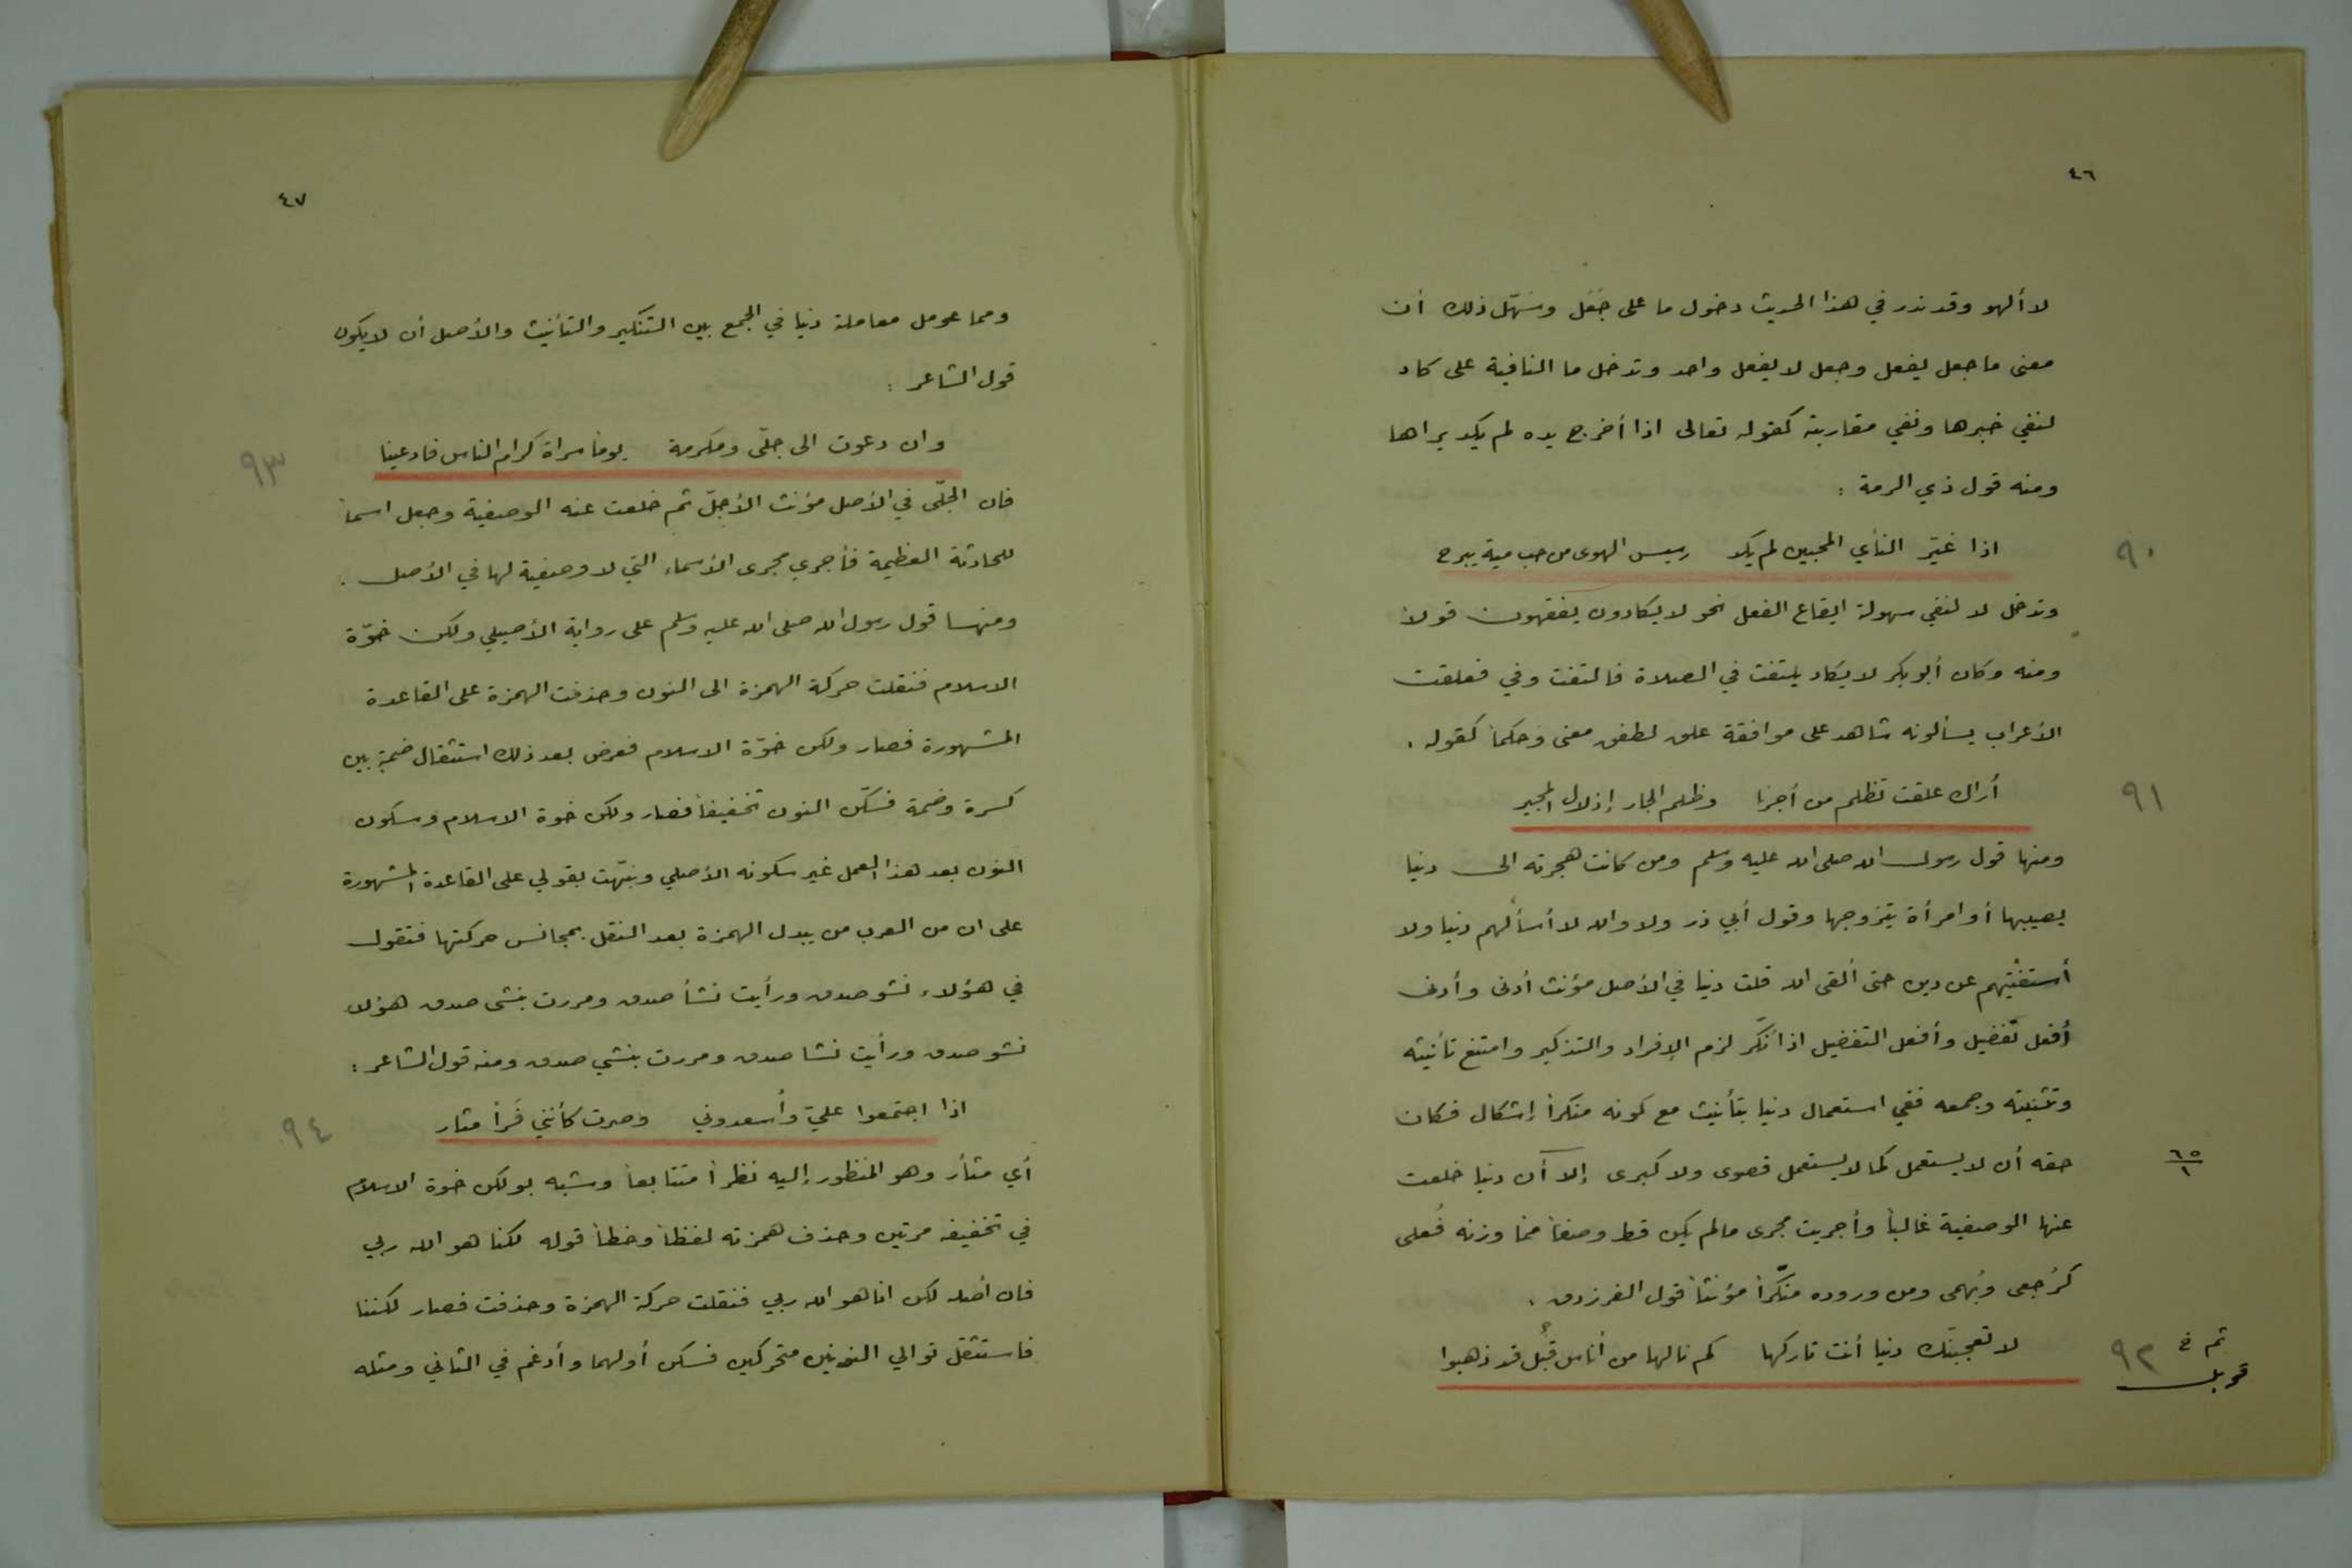 ٤٦
لا ألهو وقد ندر في هذا الحديث دخول ما على جَعَل وسَهّل ذلك أن
معنى ما جعل يفعل وجعل لا يفعل واحد وتدخل ما النافية على كاد
لنفي خبرها ونفي مقاربته كقوله تعالى اذا أخرج يده لم يكد يراها
ومنه قول ذي الرمة :
اذا غيّر النأي المحبين لم يكد رسيس الهوى من حب مية يبرح ٩٠
وتدخل لا لنفي سهولة ايقاع الفعل نحو لا يكادون يفقهون قولاً
ومنه وكان أبو بكر لا يكاد يلتفت في الصلاة فالتفت وفي فعلقت
الأعراب يسألونه شاهد على موافقة علق لطفق معنى وحكماً كقوله .
أراك علقت تظلم من أجرنا وظلم الجار إذلال المجير ٩١
ومنها قول رسول الله صلى الله عليه وسلم ومن كانت هجرته الى دنيا
يصيبها أو امرأة يتزوجها وقول أبي ذر ولا والله لا أسألهم دنيا ولا
أستفتيهم عن دين حتى ألقى الله قلت دنيا في الأصل مؤنث أدنى وأدنى
أفعل تفضيل وأفعل التفضيل اذا نُكّر لزم الإفراد والتذكير وامتنع تأنيثه
وتثنيته وجمعه ففي استعمال دنيا بتأنيث مع كونه منكراً إشكال فكان
حقه أن لا يستعمل كما لا يستعمل قصوى ولا كبرى إلا أن دنيا خلعت ٦٥/١
عنها الوصفية غالباً وأجريت مجرى مالم يكن قط وصفاً مما وزنه فُعلى
كرُجعى وبُهمى ومن وروده منكّراً مؤنثاً قول الفرزدق .
لا تعجبنّك دنيا أنت تاركها كم نالها من أناس قبُل قد ذهبوا ٩٢
٤٧
ومما عومل معاملة دنيا في الجمع بين التنكير والتأنيث والأصل أن لا يكون
قول الشاعر :
وان دعوت الى جلّى ومكرمة يوما سراة كرام الناس فادعينا ٩٣
فان الجلّى في الأصل مؤنث الأجلّ ثم خلعت عنه الوصفية وجعل اسماً
للحادثة العظيمة فأجري مجرى الأسماء التي لا وصفية لها في الأصل .
ومنها قول رسول الله صلى الله عليه وسلم على رواية الأصيلي ولكن خوّة
الاسلام فنقلت حركة الهمزة الى النون وحذفت الهمزة على القاعدة
المشهورة فصار ولكن خوّة الاسلام فعرض بعد ذلك استثقال ضمة بين
كسرة وضمة فسكّن النون تخفيفاً فصار ولكن خوة الاسلام وسكون
النون بعد هذا العمل غير سكونه الأصلي ونبّهت بقولي على القاعدة المشهورة
على ان من العرب من يبدل الهمزة بعد النقل بمجانس حركتها فتقول
في هؤلاء نشو صدق ورأيت نشأ صدق ومررت بنشئ صدق هؤلا
نشو صدق ورأيت نشا صدق ومررت بنشي صدق ومنه قول الشاعر :
اذا اجتمعوا عليّ وأسعدوني وصرت كأنني فَرأ متار ٩٤
أي متأر وهو المنظور إليه نظراً متتابعاً وشبه بولكن خوة الاسلام
في تخفيفه مرتين وحذف همزته لفظاً وخطاً قوله لكنا هو الله ربي
فان أصله لكن انا هو الله ربي فنقلت حركة الهمزة وحذفت فصار لكننا
فاستثقل توالي النونين متحركين فسكن أولهما وأدغم في الثاني ومثله